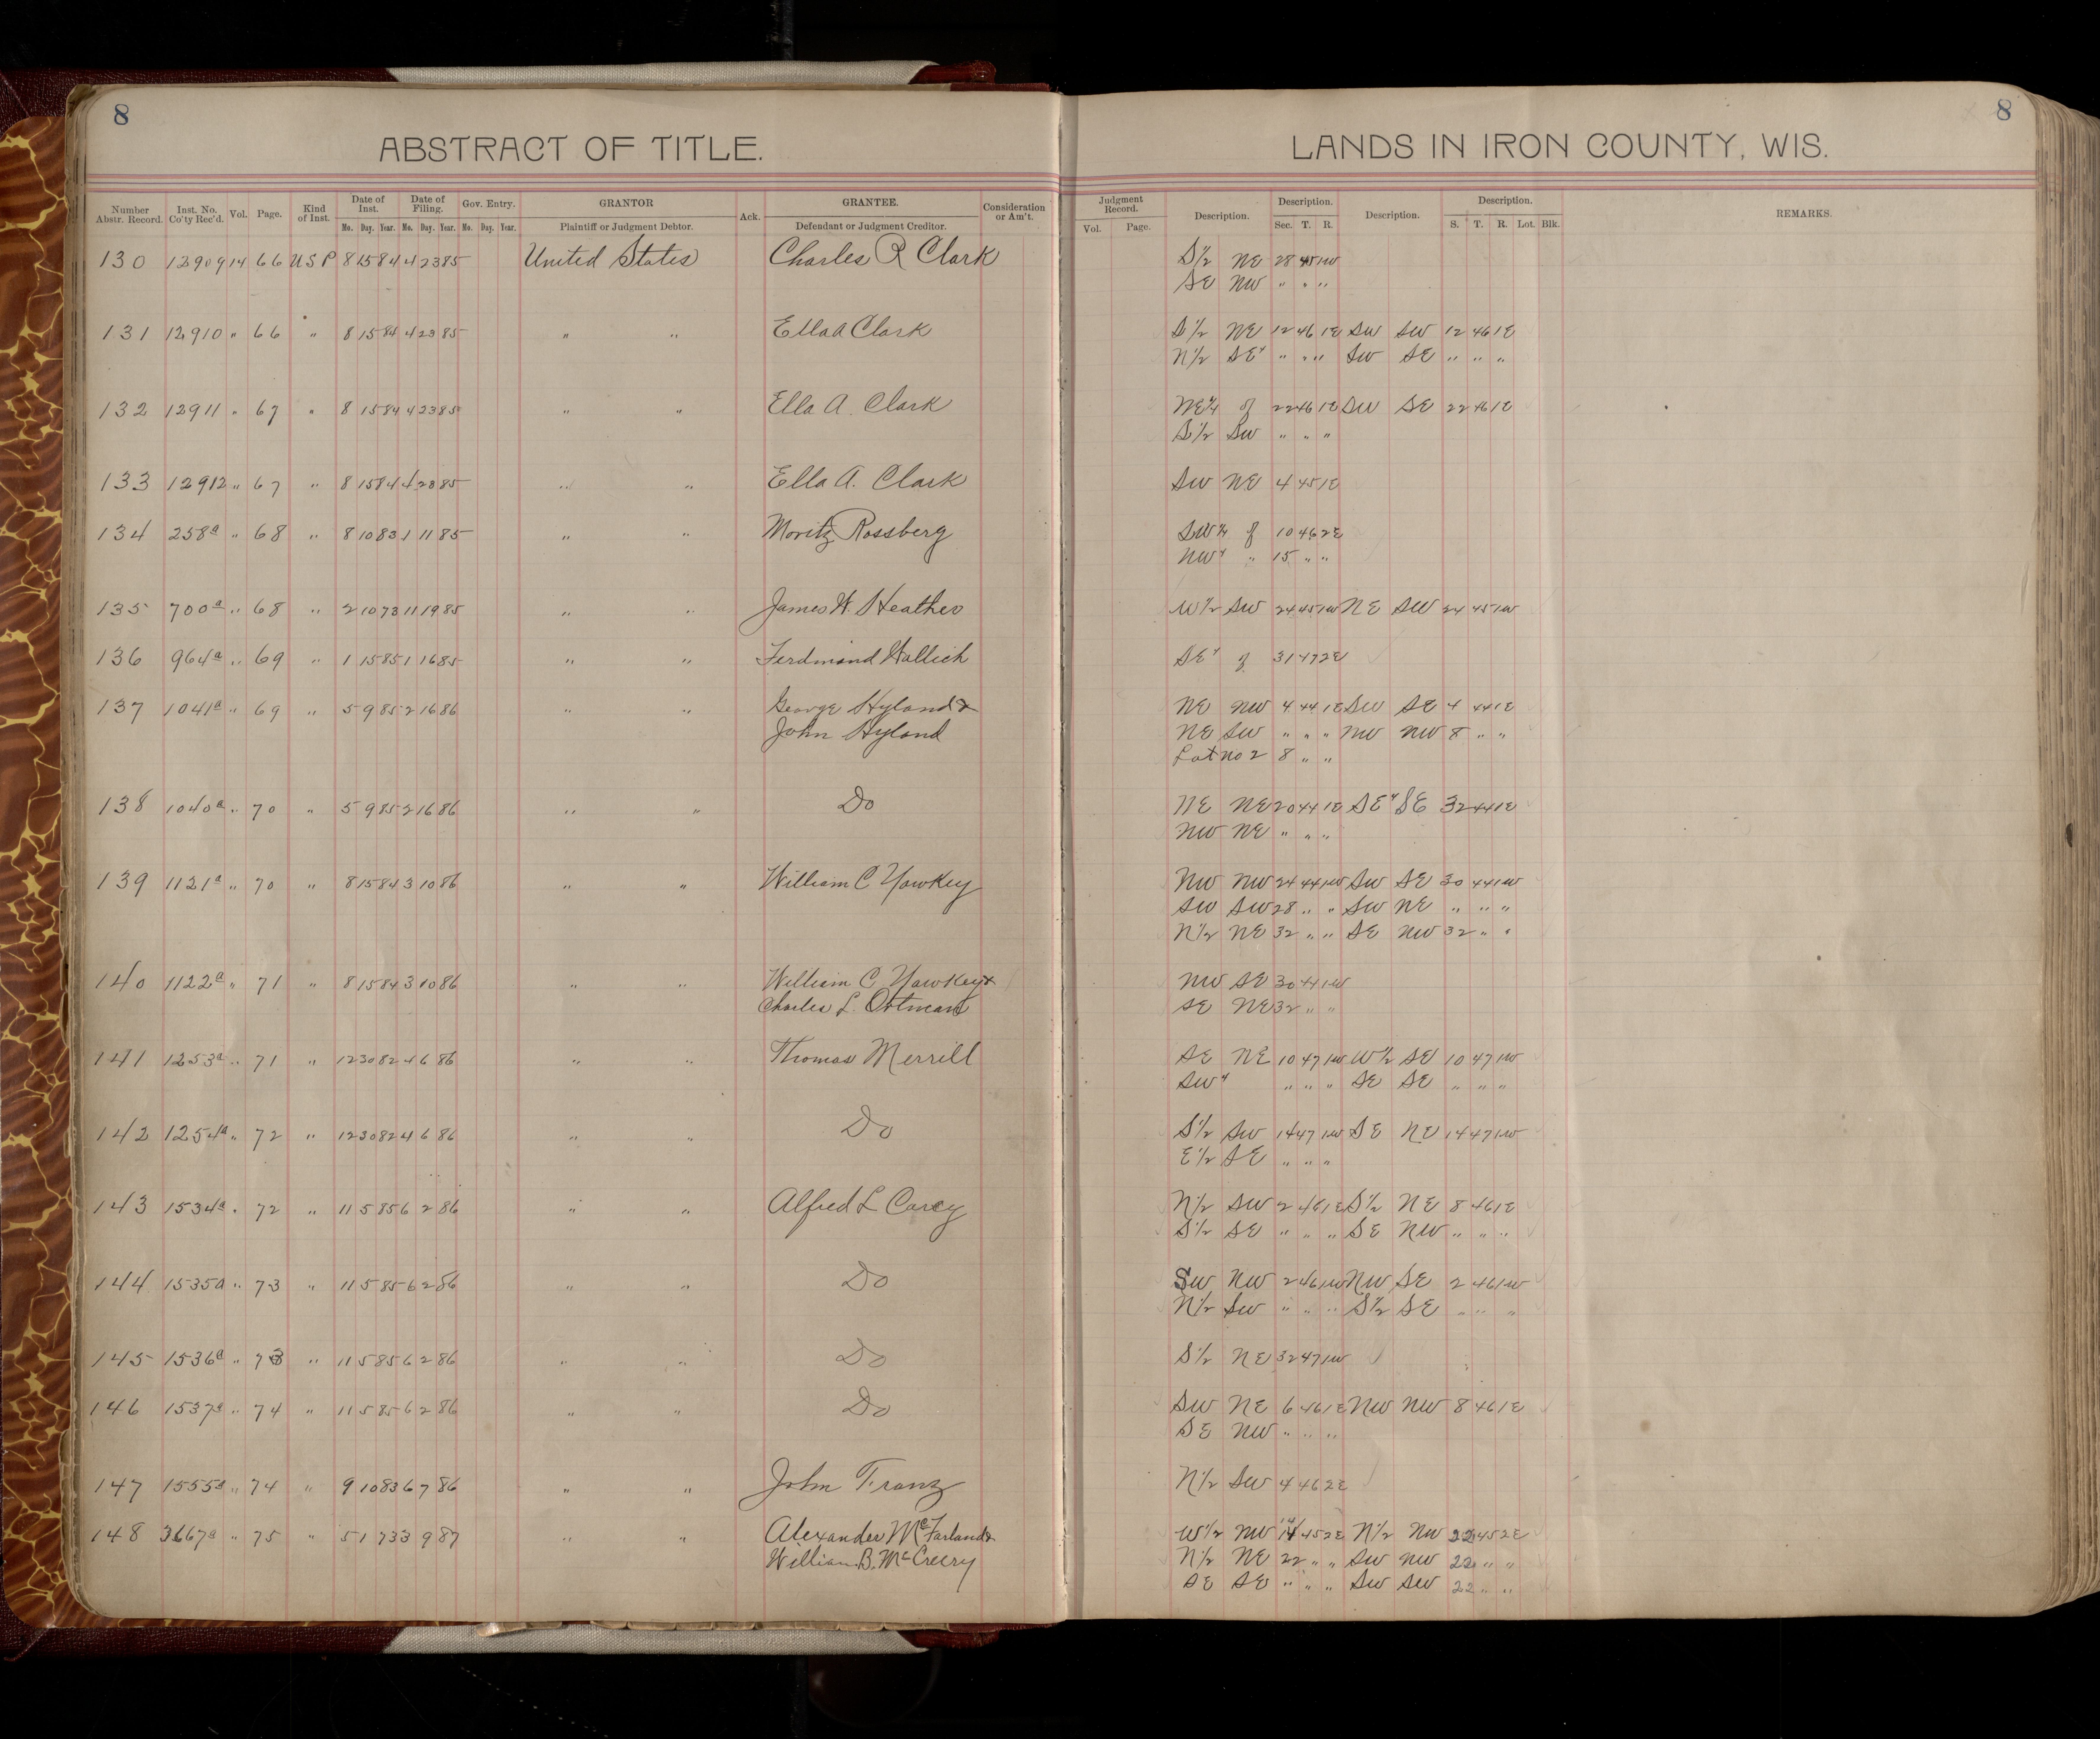 8
8
ABSTRACT OF TITLE.
LANDS IN IRON COUNTY, WIS.
Number Abstr. Record. Inst. No. Co'ty Rec'd. Vol. Page. Kind of Inst. Date of Inst. Date of Filing. Gov. Entry. GRANTOR Ack. GRANTEE. Consideration or Am't. Judgment Record. Description. Description. Description. Description. REMARKS.
Mo. Day. Year. Mo. Day. Year. Mo. Day. Year. Plaintiff or Judgment Debtor. Defendant or Judgment Creditor. Vol. Page. Sec. T. R. S. T. R. Lot. Blk.
130 12909 14 66 USP 8 15 84 4 23 85 United States Charles R Clark S½ NE 28 45 1W
SE NW " " "
131 12910 " 66 " 8 15 84 4 23 85 " " Ella A Clark S½ NE 12 46 1E SW SW 12 46 1E
N½ SE¼ " " " SW SE " " "
132 12911 " 67 " 8 15 84 4 23 85 " " Ella A. Clark NE¼ of 22 46 1E SW SE 22 46 1E
S½ SW " " "
133 12912 " 67 " 8 15 84 4 23 85 " " Ella A. Clark SW NE 4 45 1E
134 258a " 68 " 8 10 83 1 11 85 " " Moritz Rossberg SW¼ of 10 46 2E
NW¼ " 15 " "
135 700a " 68 " 2 10 73 11 19 85 " " James W. Heather W½ SW 24 45 1W NE SW 24 45 1W
136 964a " 69 " 1 15 85 1 16 85 " " Ferdinand Wallich SE¼ of 31 47 2E
137 1041a " 69 " 5 9 85 2 16 86 " " George Hyland & NE NW 4 44 1E SW SE 4 44 1E
John Hyland NE SW " " " NW NW 8 " "
Lot no 2 8 " "
138 1040a " 70 " 5 9 85 2 16 86 " " Do NE NE 20 44 1E SE¼ SE 32 44 1E
NW NE " " "
139 1121a " 70 " 8 15 84 3 10 86 " " William C Yawkey NW NW 24 44 1W SW SE 30 44 1W
SW SW 28 " " SW NE " " "
N½ NE 32 " " SE NW 32 " "
140 1122a " 71 " 8 15 84 3 10 86 " " William C Yawkey & NW SE 30 44 1W
Charles L. Ortman SE NE 32 " "
141 1253a " 71 " 12 30 82 4 6 86 " " Thomas Merrill SE NE 10 47 1W W½ SE 10 47 1W
SW¼ " " " SE SE " " "
142 1254a " 72 " 12 30 82 4 6 86 " " Do S½ SW 14 47 1W SE NE 14 47 1W
E½ SE " " "
143 1534a " 72 " 11 5 85 6 2 86 " " Alfred L Carey N½ SW 2 46 1E S½ NE 8 46 1E
S½ SE " " " SE NW " " "
144 1535a " 73 " 11 5 85 6 2 86 " " Do SW NW 2 46 1W NW SE 2 46 1W
N½ SW " " " S½ SE " " "
145 1536a " 73 " 11 5 85 6 2 86 " " Do S½ NE 32 47 1W
146 1537a " 74 " 11 5 85 6 2 86 " " Do SW NE 6 46 1E NW NW 8 46 1E
SE NW " " "
147 1555a " 74 " 9 10 83 6 7 86 " " John Tranz N½ SW 4 46 2E
148 3667a " 75 " 5 1 73 3 9 87 " " Alexander McFarland & W½ NW 14 45 2E N½ NW 22 45 2E
William B. McCreery N½ NE 22 " " SW NW 22 " "
SE SE " " " SW SW 22 " "